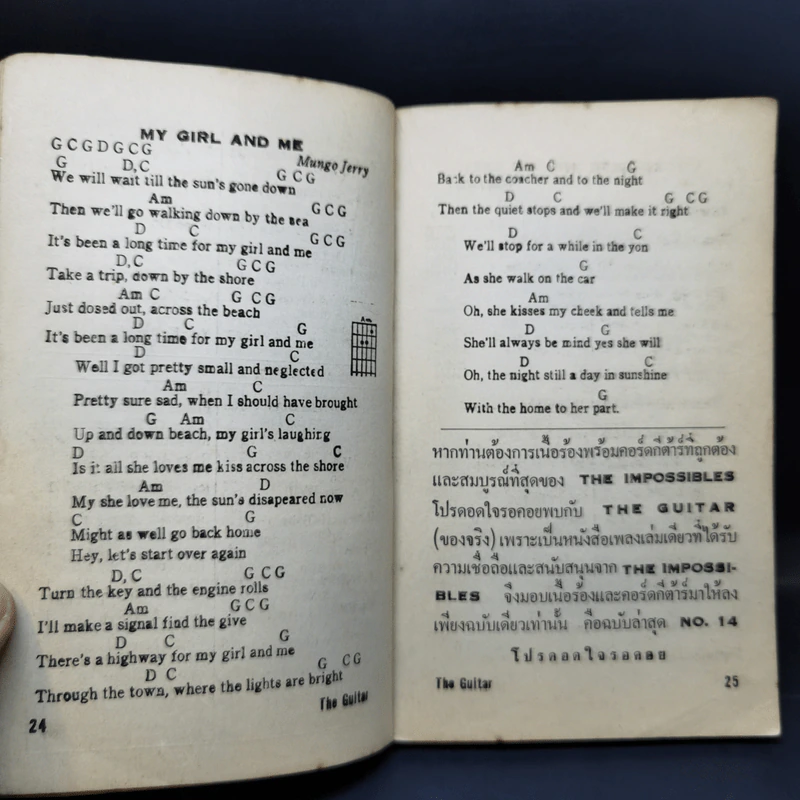 MY GIRL AND ME
Mungo Jerry
G C G D G C G
G D, C G C G
We will wait till the sun's gone down
Am G C G
Then we'll go walking down by the sea
D C G C G
It's been a long time for my girl and me
D, C G C G
Take a trip, down by the shore
Am C G C G
Just dosed out, across the beach
D C G
It's been a long time for my girl and me
Am
D C
Well I got pretty small and neglected
Am C
Pretty sure sad, when I should have brought
G Am C
Up and down beach, my girl's laughirg
D G C
Is it all she loves me kiss across the shore
Am D
My she love me, the sun's disapeared now
C G
Might as well go back home
Hey, let's start over again
D, C G C G
Turn the key and the engine rolls
Am G C G
I'll make a signal find the give
D C G
There's a highway for my girl and me
D C G C G
Through the town, where the lights are bright
The Guitar
24
Am C G
Back to the coacher and to the night
D C G C G
Then the quiet stops and we'll make it right
D C
We'll stop for a while in the yon
G
As she walk on the car
Am
Oh, she kisses my cheek and tells me
D G
She'll always be mind yes she will
D C
Oh, the night still a day in sunshine
G
With the home to her part.
หากท่านต้องการเนื้อร้องพร้อมคอร์ดกีต้าร์ที่ถูกต้อง
และสมบูรณ์ที่สุดของ THE IMPOSSIBLES
โปรดอดใจรอคอยพบกับ THE GUITAR
(ของจริง) เพราะเป็นหนังสือเพลงเล่มเดียวที่ได้รับ
ความเชื่อถือและสนับสนุนจาก THE IMPOSSI-
BLES จึงมอบเนื้อร้องและคอร์ดกีต้าร์มาให้ลง
เพียงฉบับเดียวเท่านั้น คือฉบับล่าสุด NO. 14
โปรดอดใจรอคอย
The Guitar 25